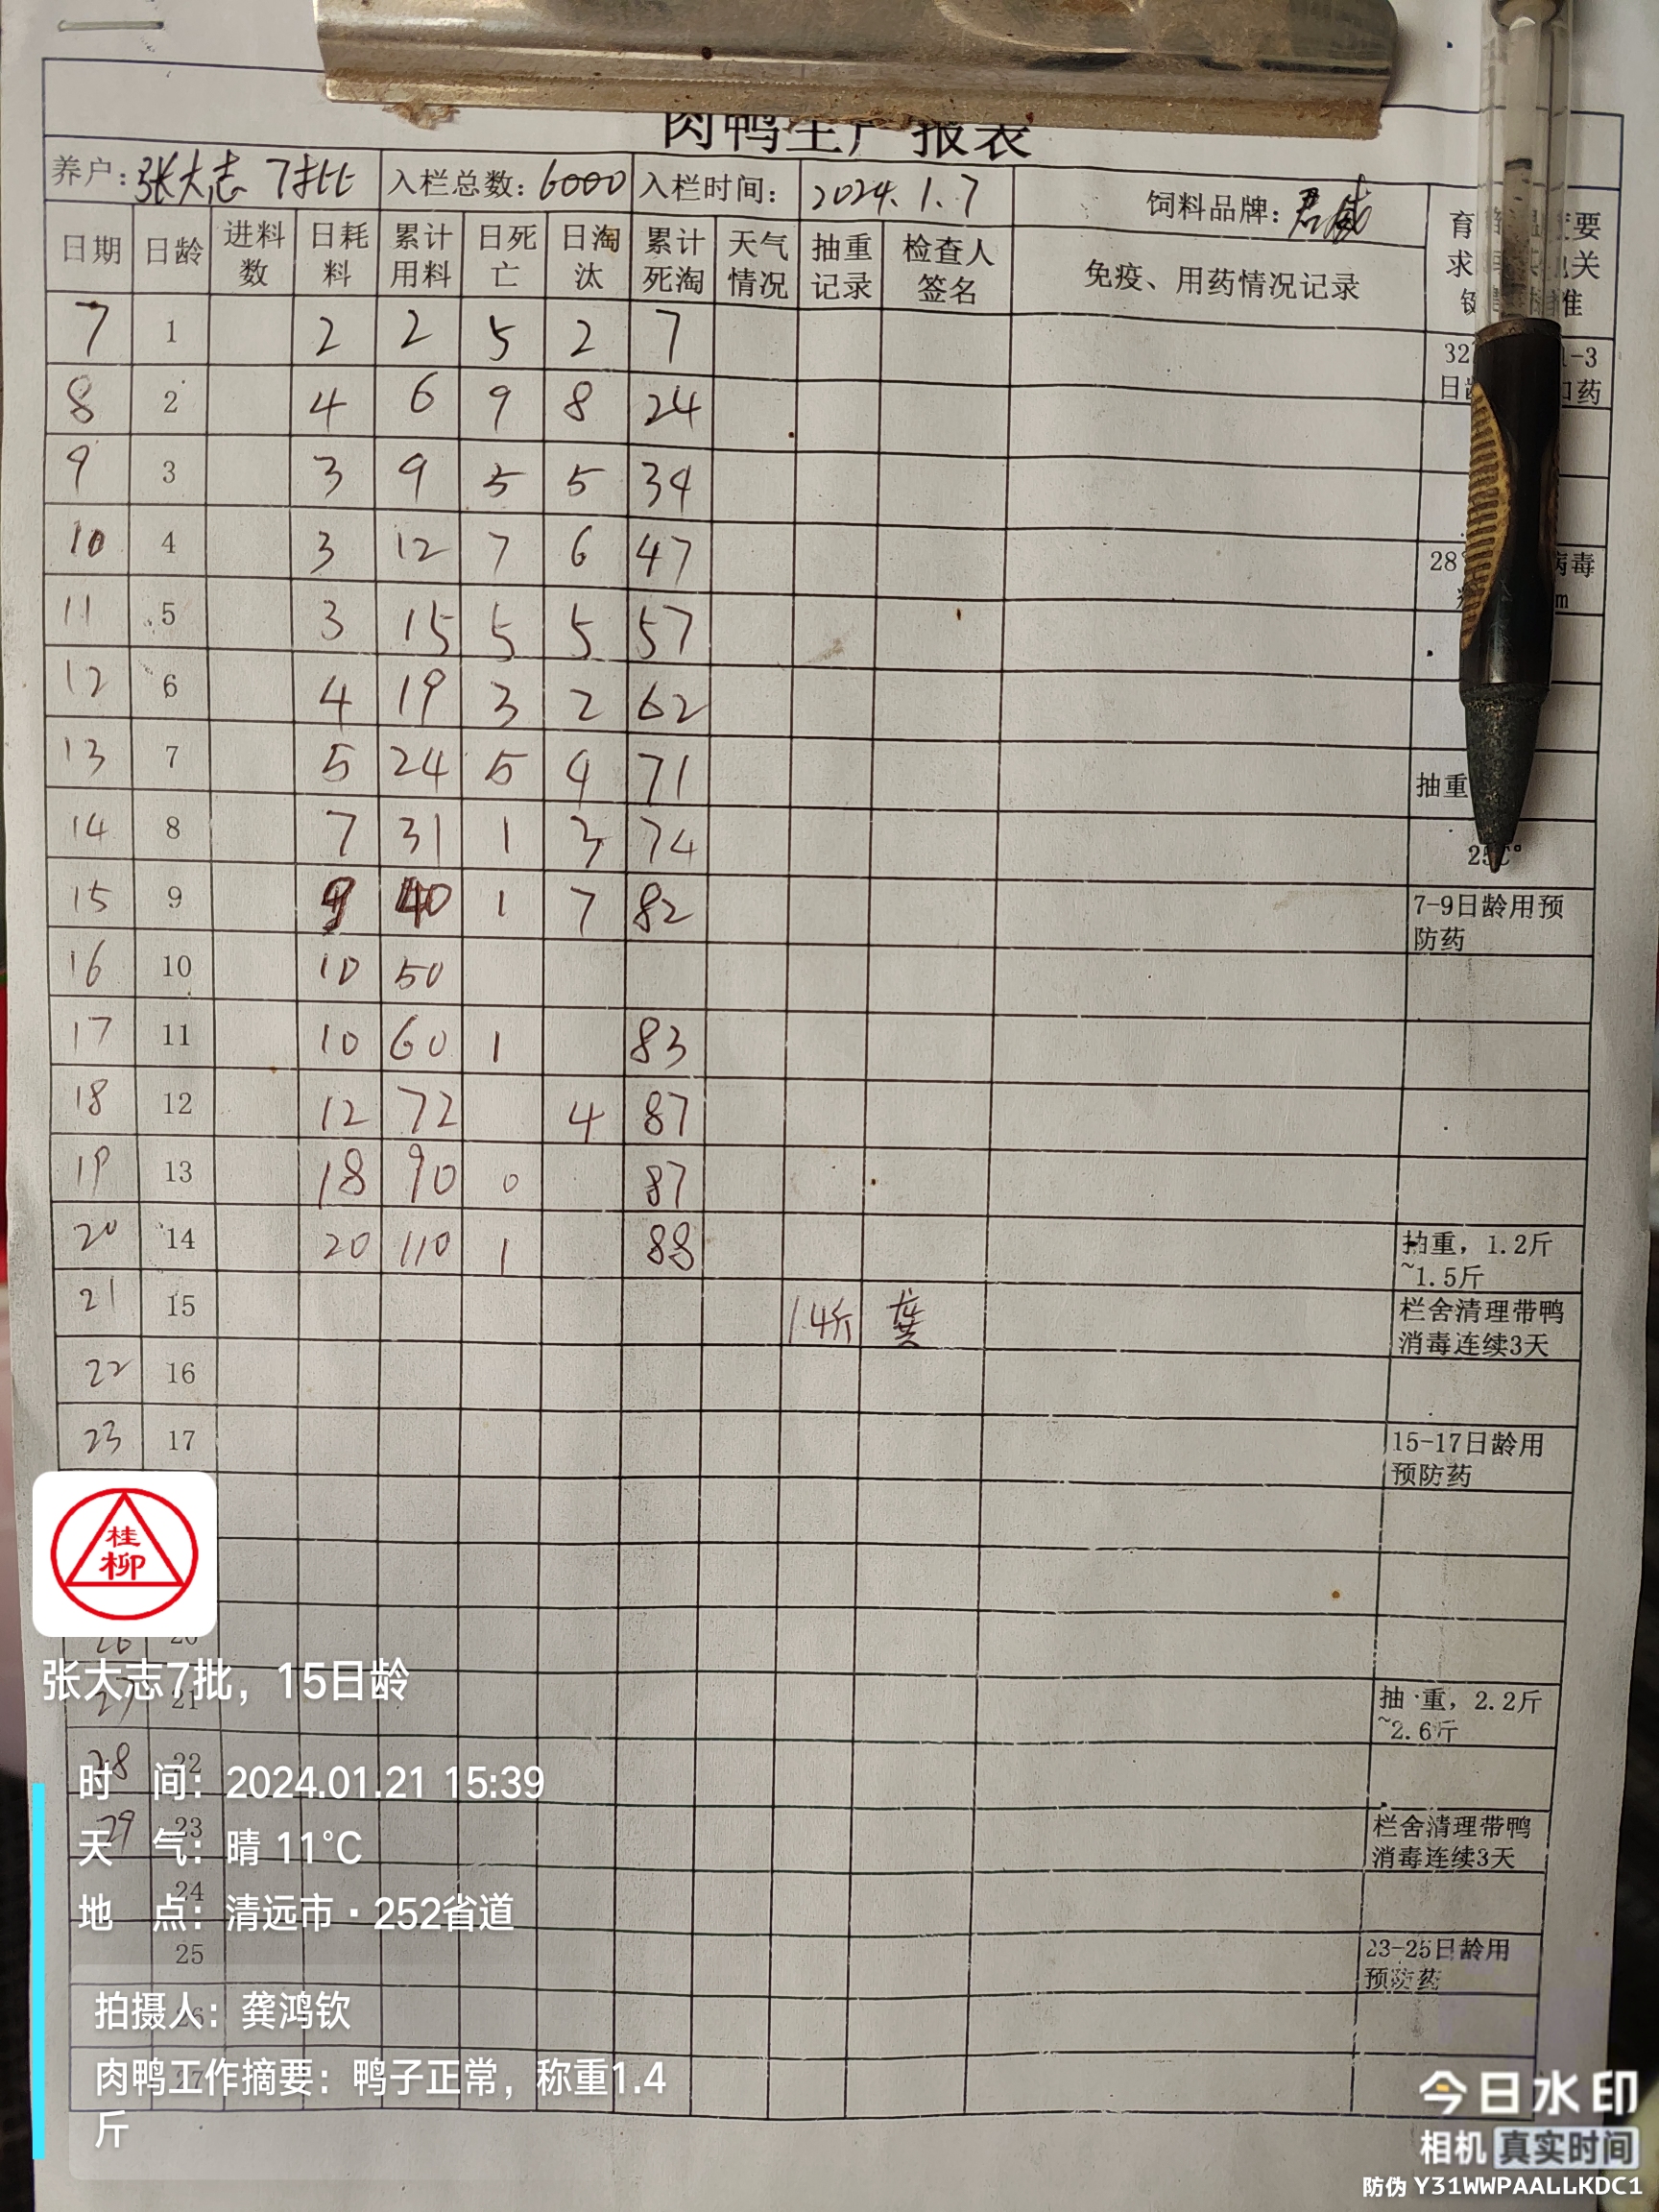 肉鸭生产报表
养户：张大志 7批 入栏总数：6000 入栏时间： 2024.1.7 饲料品牌：君威
日期 日龄 进料数 日耗料 累计用料 日死亡 日淘汰 累计死淘 天气情况 抽重记录 检查人签名 免疫、用药情况记录
7 1 2 2 5 2 7
8 2 4 6 9 8 24
9 3 3 9 5 5 34
10 4 3 12 7 6 47
11 5 3 15 5 5 57
12 6 4 19 3 2 62
13 7 5 24 5 4 71
抽重
14 8 7 31 1 3 74
15 9 9 40 1 7 82 7-9日龄用预
防药
16 10 10 50
17 11 10 60 1 83
18 12 12 72 4 87
19 13 18 90 0 87
20 14 20 110 1 88 抽重，1.2斤
~1.5斤
21 15 1.4斤 龚 栏舍清理带鸭
消毒连续3天
22 16
23 17 15-17日龄用
预防药
桂
柳
26 20
张大志7批，15日龄
27 21 抽重，2.2斤
~2.6斤
28 22
时 间：2024.01.21 15:39
29 23 栏舍清理带鸭
消毒连续3天
天 气：晴 11°C
24
地 点：清远市·252省道
25 23-25日龄用
预防药
26
拍摄人：龚鸿钦
27
肉鸭工作摘要：鸭子正常，称重1.4
斤
今日水印
相机 真实时间
防伪 Y31WWPAALLKDC1